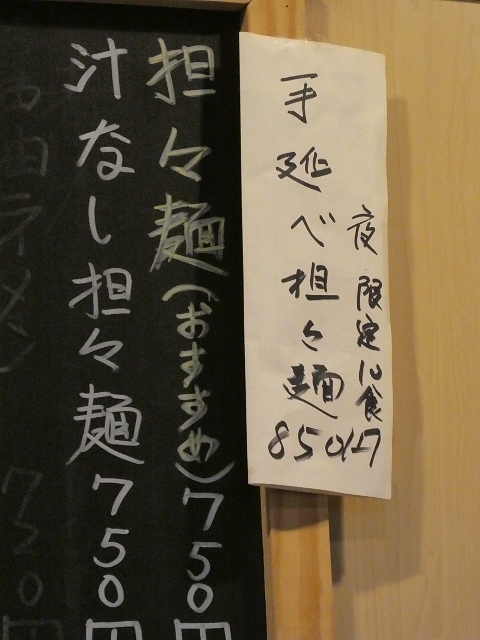 夜限定10食
手延べ担々麺
850円
担々麺(おすすめ)750円
汁なし担々麺750円